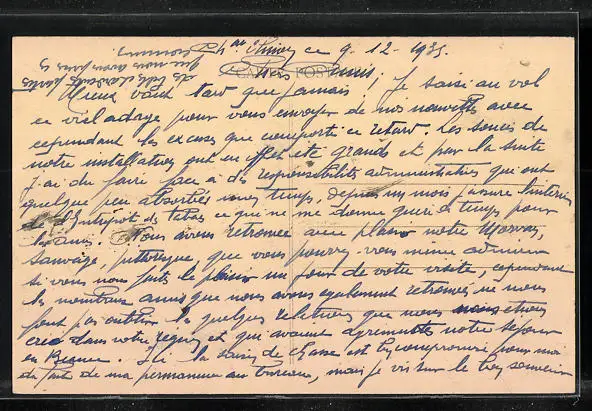 ce 9-12-1935.
CARTE POSTALE
Chers amis,
Mieux vaut tard que jamais ; Je saisi au vol
ce vieil adage pour vous envoyer de nos nouvelles avec
cependant les excuses que comporte ce retard. Les soucis de
notre installation ont en effet été grands et par la suite
J'ai du faire face à des responsabilités administratives qui ont
quelque peu absorbées mon temps, depuis un mois j'assure l'intérim
de l'Entrepôt des Tabacs ce qui ne me donne guère de temps pour
Nous avons retrouvé avec plaisir notre Morvan,
sauvage, pittoresque, que vous pouvez vous même admirer
si vous nous faites le plaisir un jour de votre visite, cependant
les nombreux amis que nous avons également retrouvés ne nous
font pas oublier les quelques relations que nous nous étions
créé dans votre région et qui avaient agrémenté notre séjour
en Beauce. Ici la saison de chasse est compromise pour moi
du fait de ma permanence au bureau, mais je vis sur le bon souvenir
que nous avons